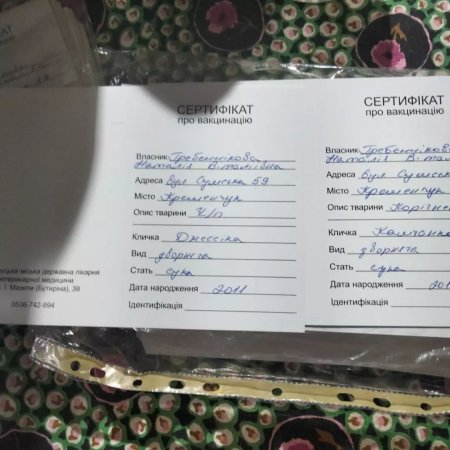 КАТ
СЕРТИФІКАТ
про вакцинацію
Власник Гребеннікова
Наталія Віталіївна
Адреса вул Сумська 59
Місто Кременчук
Опис тварини ч/п
Кличка Джессіка
Вид дворняга
Стать сука
Дата народження 2011
Ідентифікація
міська державна лікарня
ветеринарної медицини
І. Мазепи (Бутиріна), 39
0536-742-894
СЕРТИФІКАТ
про вакцинацію
Власник Гребенніков
Наталія Віталі
Адреса вул Сумськ
Місто Кременчук
Опис тварини Коричне
Кличка Каштанка
Вид дворняга
Стать сука
Дата народження 201
Ідентифікація